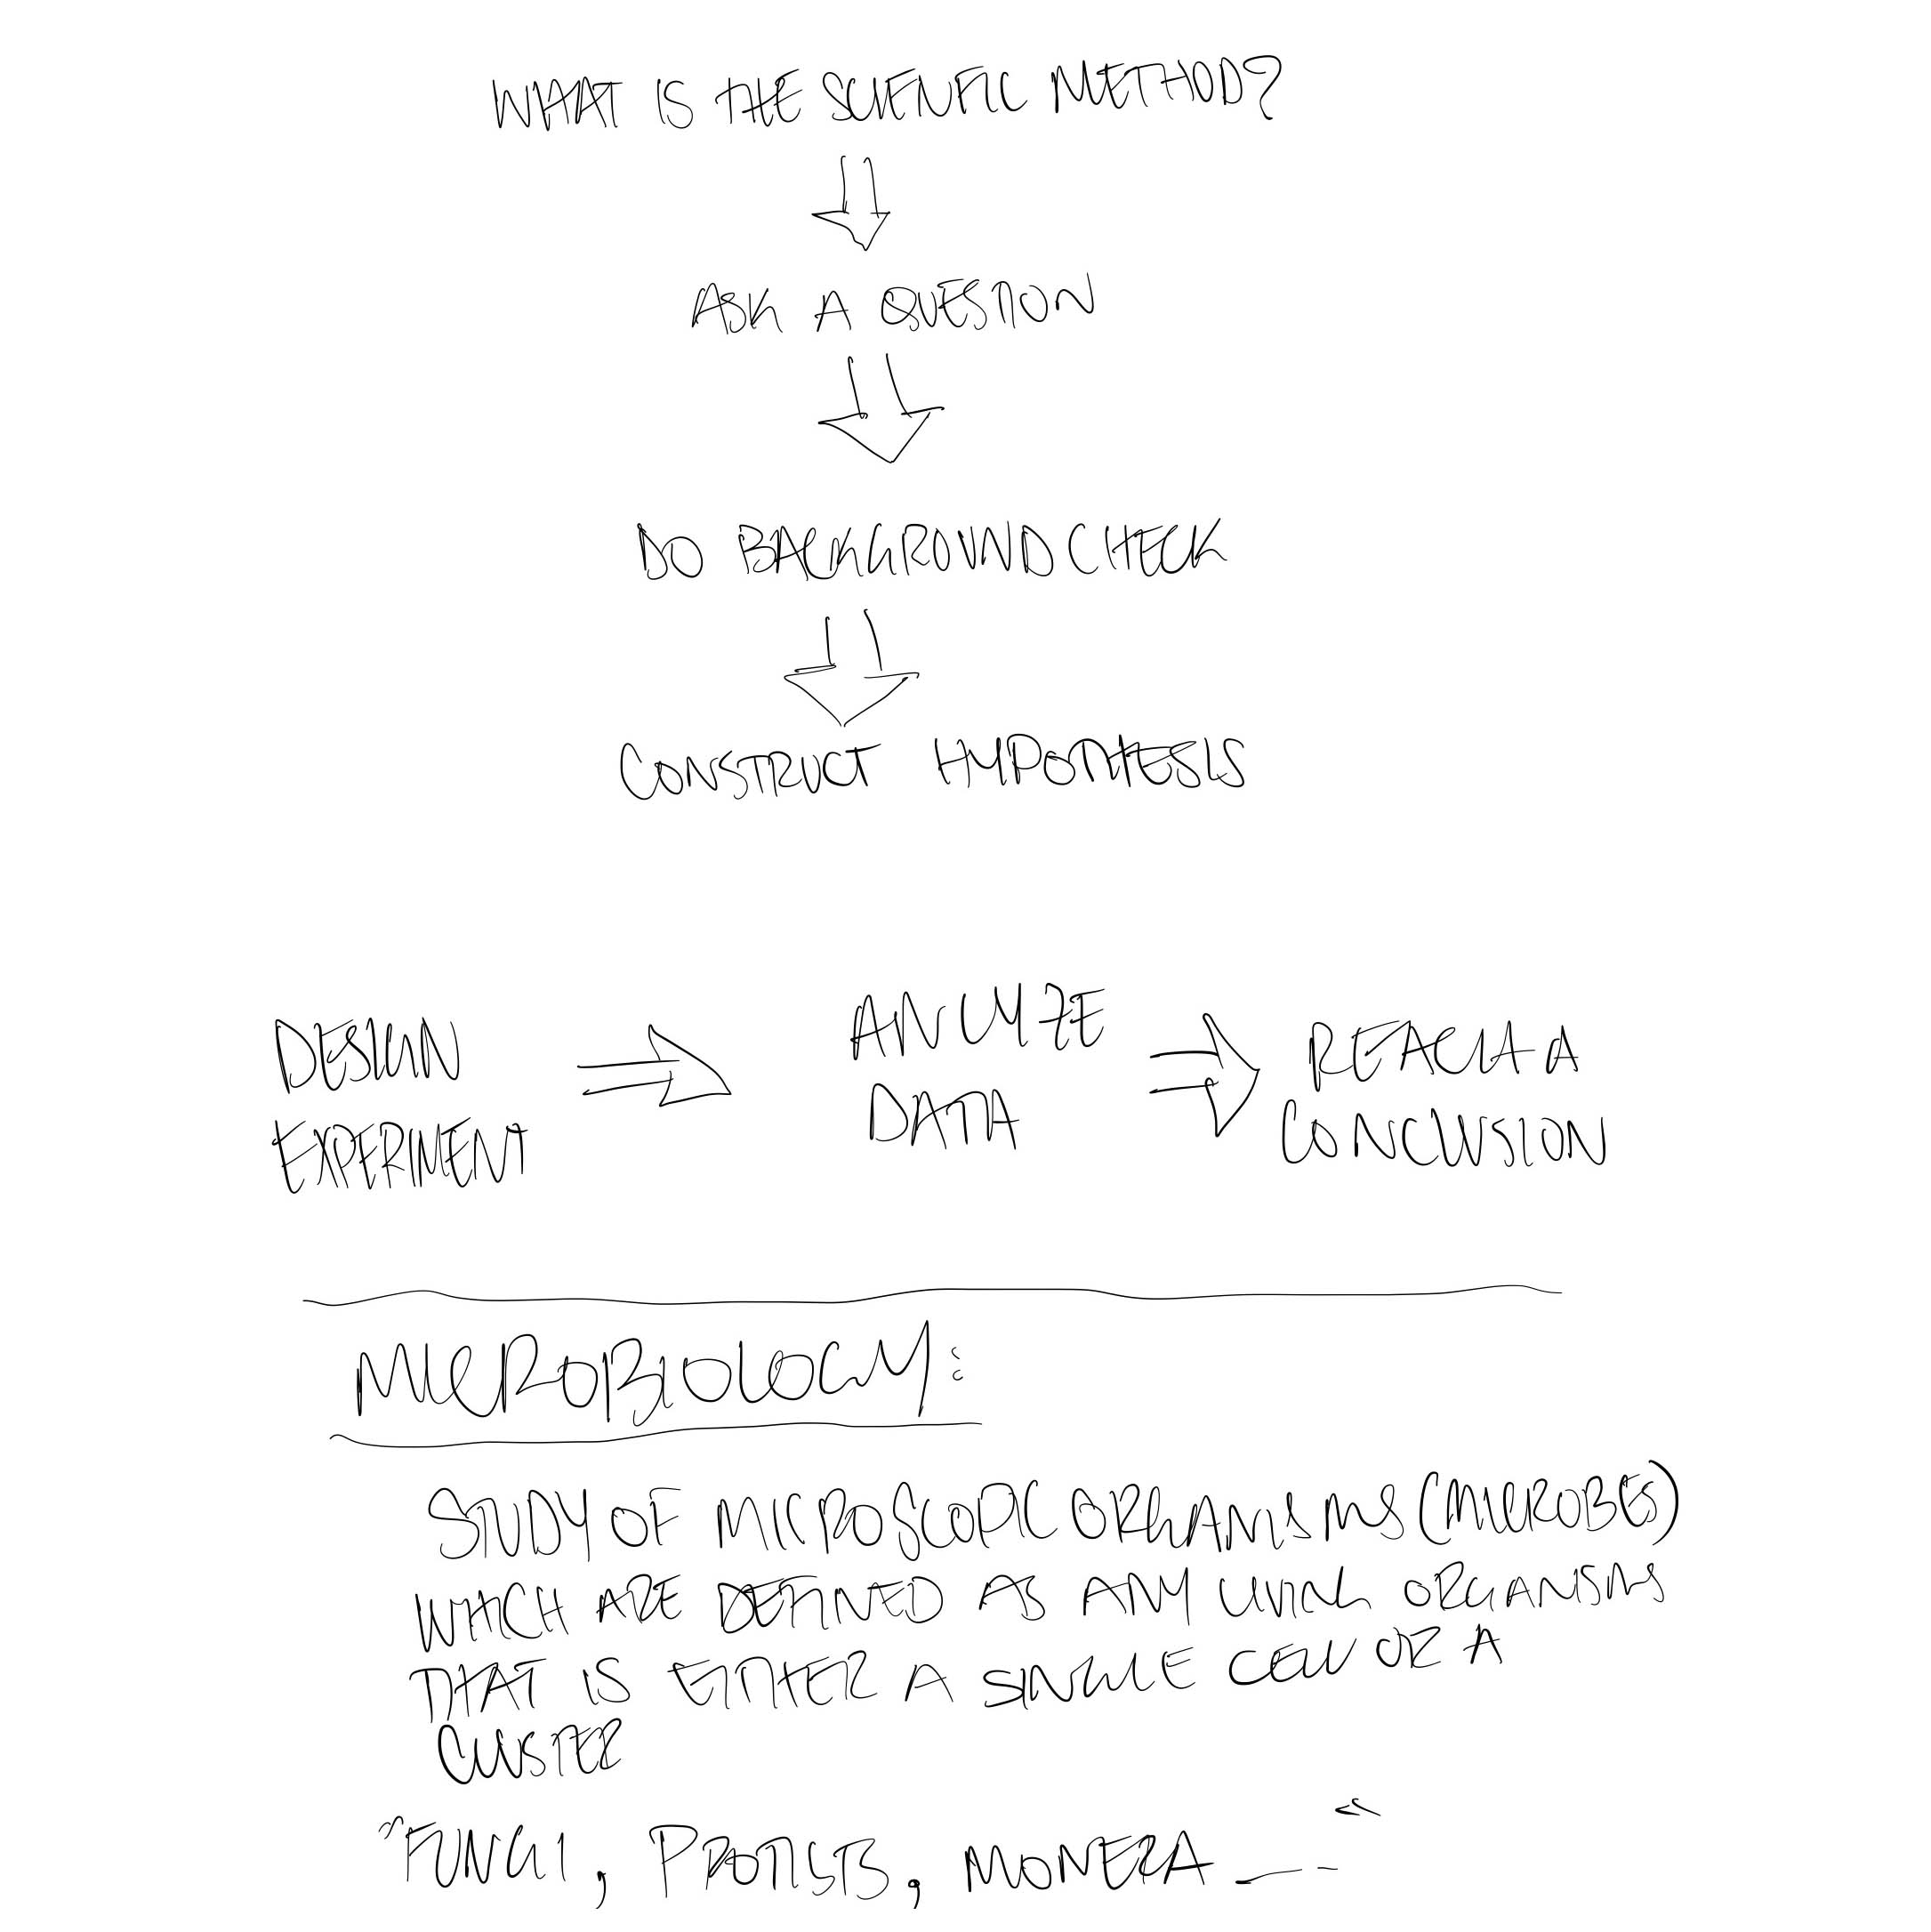 WHAT IS THE SCIENTIFIC METHOD?
ASK A QUESTION
DO BACKGROUND CHECK
CONSTRUCT HYPOTHESIS
DESIGN EXPERIMENT
ANALYZE DATA
REACH A CONCLUSION
MICROBIOLOGY:
STUDY OF MICROSCOPIC ORGANISMS (MICROBES)
WHICH ARE DEFINED AS ANY LIVING ORGANISMS
THAT IS EITHER A SINGLE CELL OR A
CLUSTER
"FUNGI, PROTISTS, MONERA __ -"